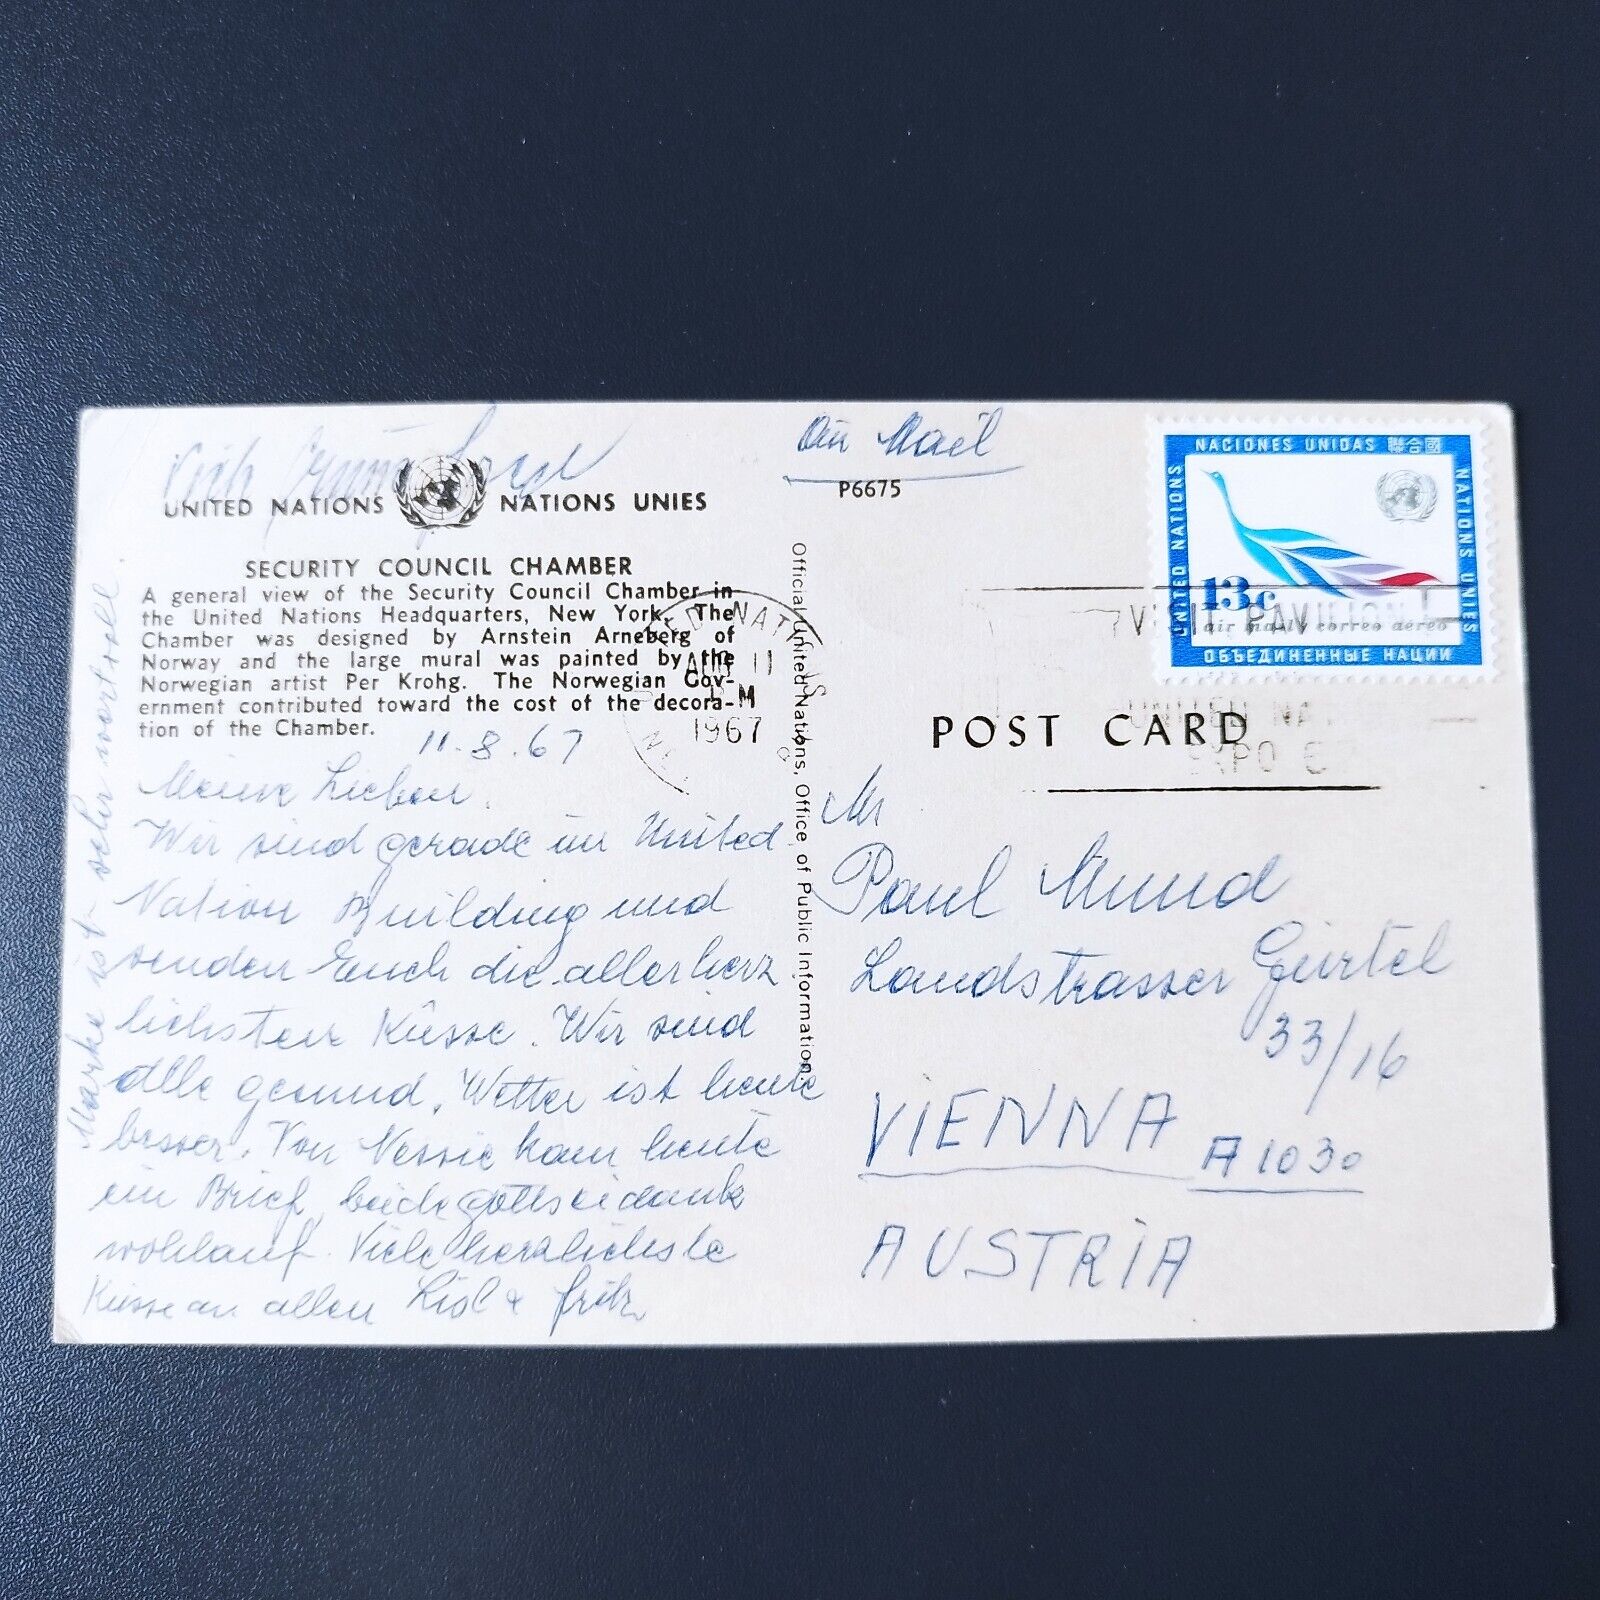 Air Mail
UNITED NATIONS NATIONS UNIES
P6675
SECURITY COUNCIL CHAMBER
A general view of the Security Council Chamber in
the United Nations Headquarters, New York. The
Chamber was designed by Arnstein Arneberg of
Norway and the large mural was painted by the
Norwegian artist Per Krohg. The Norwegian Gov-
ernment contributed toward the cost of the decora-
tion of the Chamber.
11.8.67
Meine Lieben
Wir sind gerade im United
Nation Building und
senden Euch die allerherz
lichsten Küsse. Wir sind
alle gesund. Wetter ist heute
besser. Von Nessie kam heute
ein Brief, beide gottseidank
wohlauf. Viele herzlichste
Küsse an allen Lisl & Fritz
Marke ist sehr wertvoll.
Official United Nations, Office of Public Information.
NACIONES UNIDAS 聯合國
UNITED NATIONS
NATIONS UNIES
13c
air mail correo aéreo
ОБЪЕДИНЕННЫЕ НАЦИИ
NATIONS
11
PM
1967
VISIT PAVILION
UNITED NA
EXPO 6
POST CARD
Mr
Paul Mund
Landstrasser Gürtel
33/16
VIENNA A1030
AUSTRIA